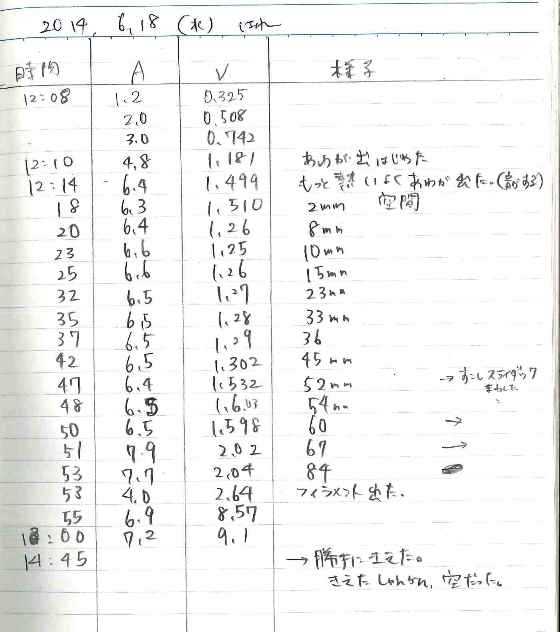 2014. 6.18 (水) はれ
時間 A V 様子
12:08 1.2 0.325
2.0 0.508
3.0 0.742
12:10 4.8 1.181 あわが出はじめた
12:14 6.4 1.499 もっと いよくあわが出た。
18 6.3 1.510 2mm 空間
20 6.4 1.26 8mm
23 6.6 1.25 10mm
25 6.6 1.26 15mm
32 6.5 1.27 23mm
35 6.5 1.28 33mm
37 6.5 1.29 36
42 6.5 1.302 45mm
47 6.4 1.532 52mm →すこしスライダック
まわした
48 6.5 1.603 54mm
50 6.5 1.598 60 →
51 7.9 2.02 67 →
53 7.7 2.04 84
53 4.0 2.64 フィラメント出た.
55 6.9 8.57
:00 7.2 9.1
14:45 →勝手にきえた。
きえたしゅんかん, 空だった。